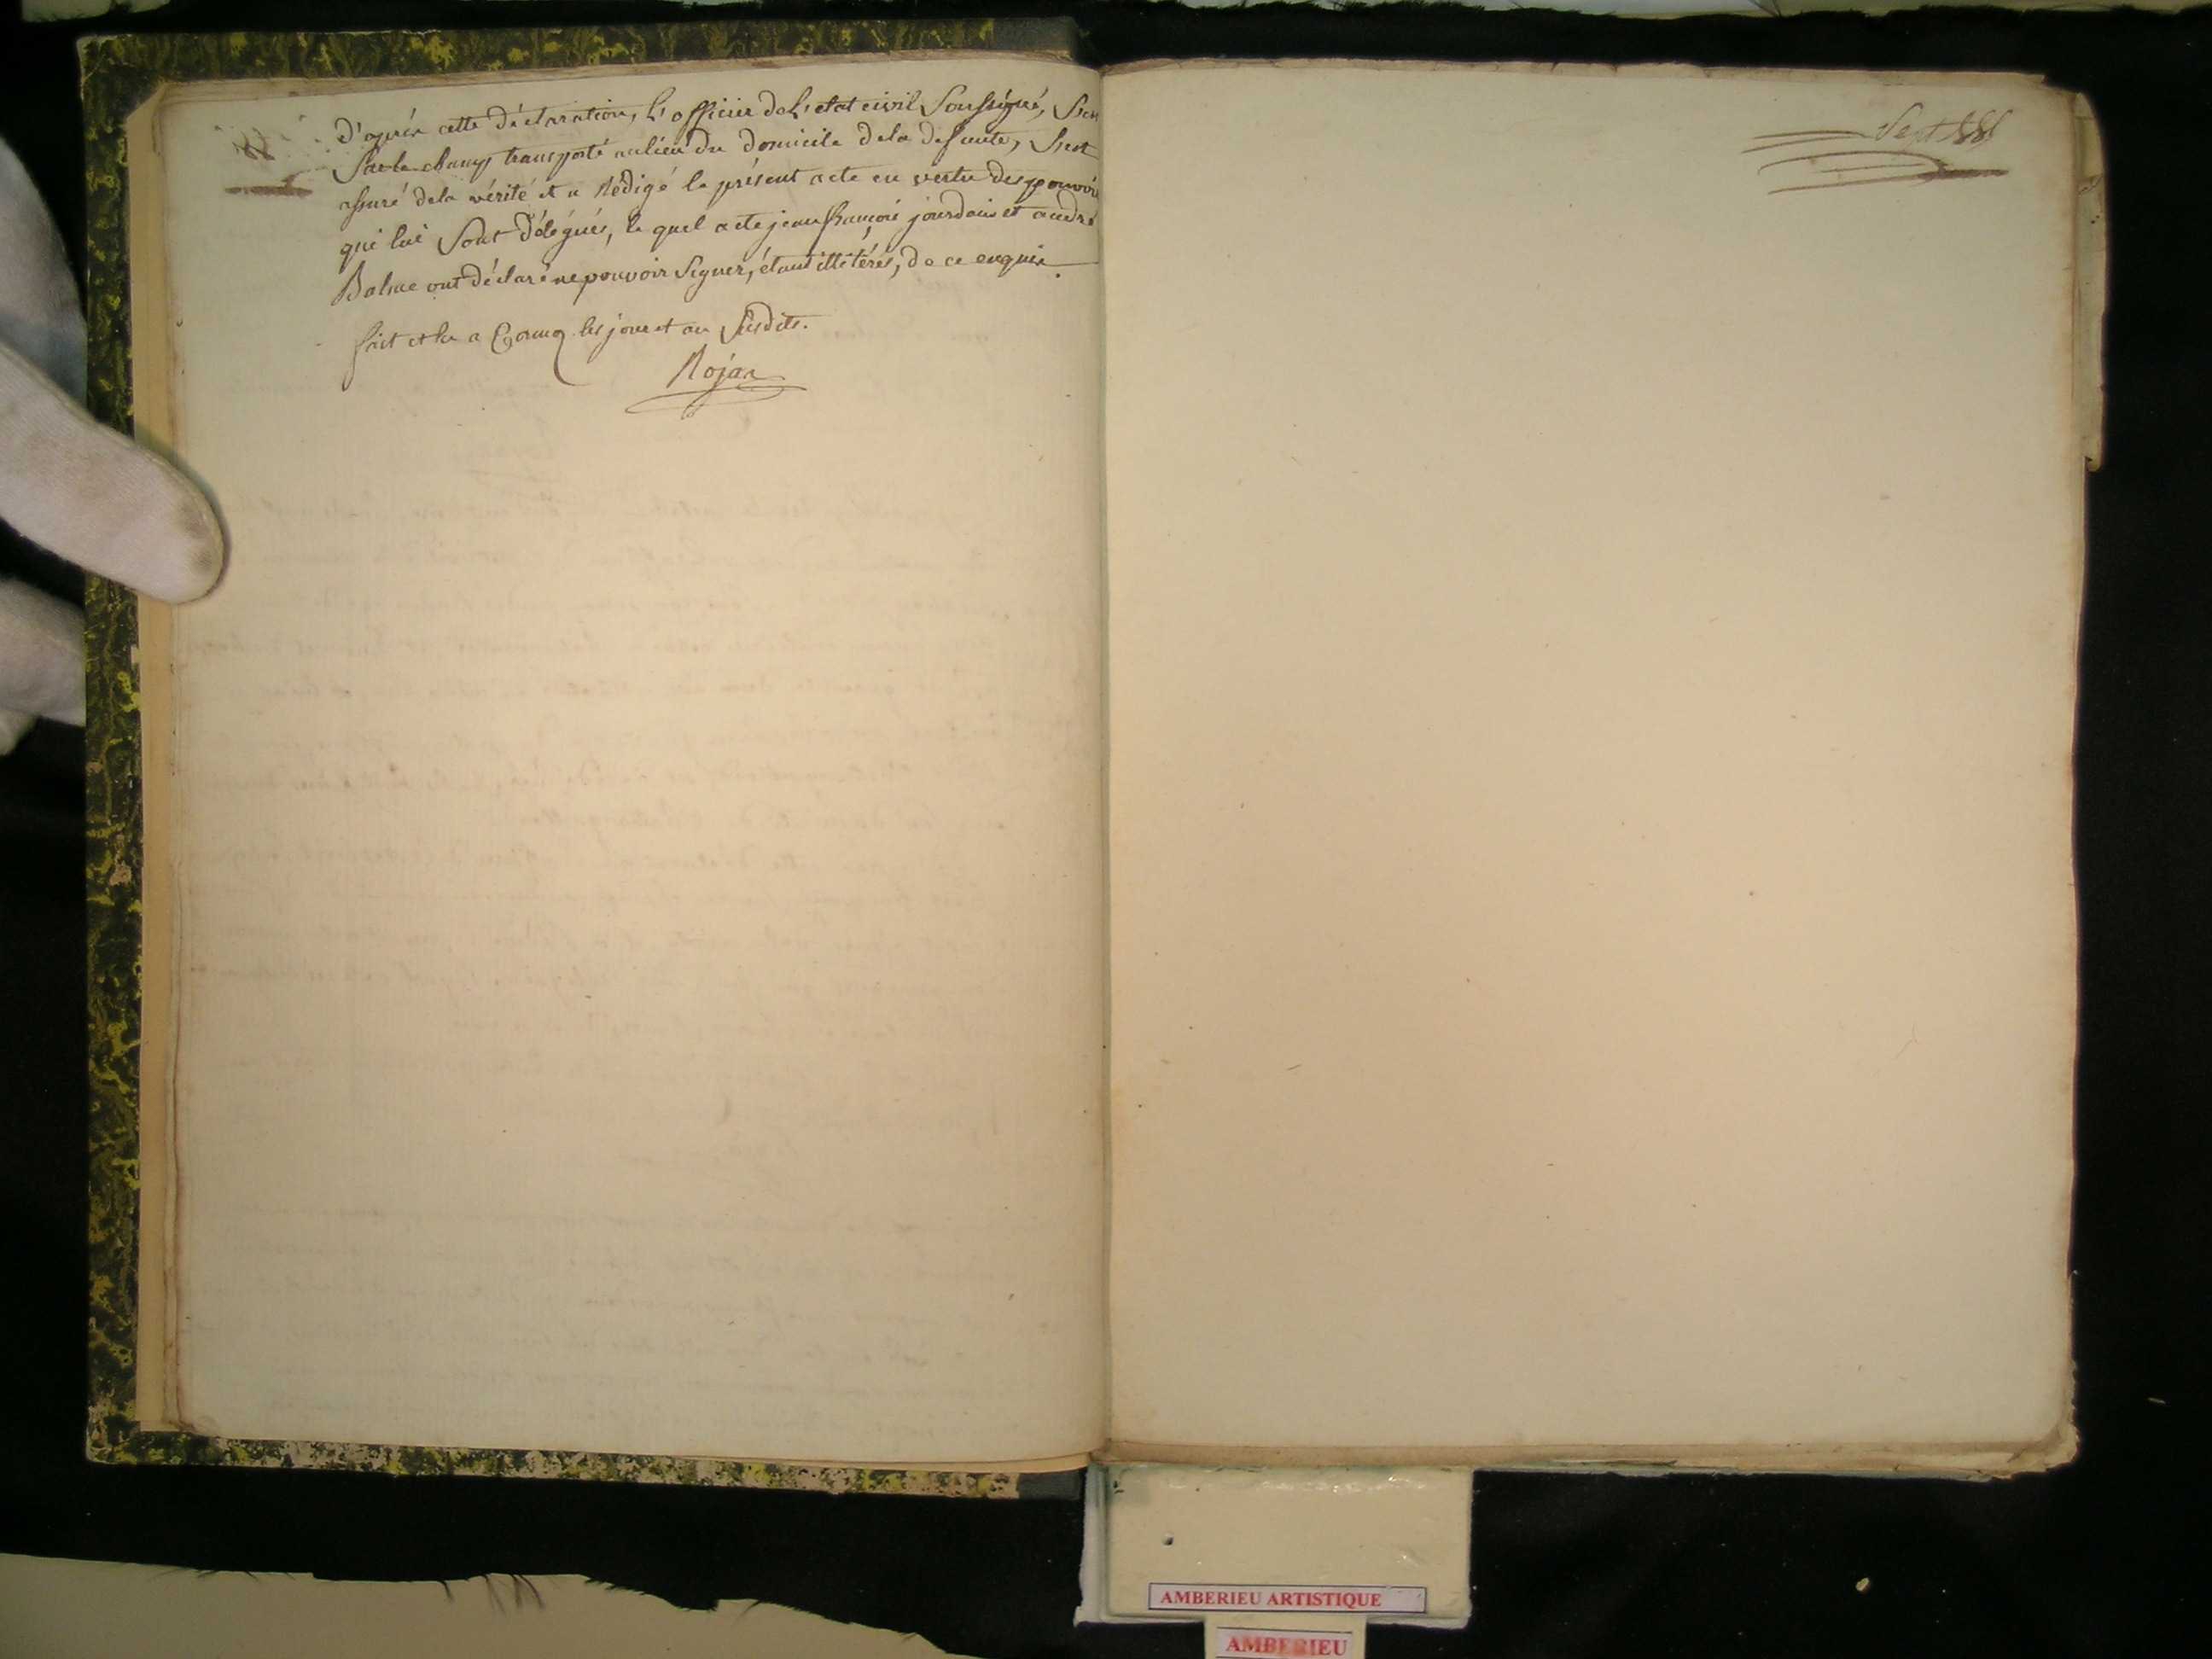 D'après cette déclaration, L'officier de L'etat civil Soussigné, S'est
Sur le champ transporté au lieu du domicile de la defunte, S'est
assuré de la vérité et a Rédigé le présent acte en vertu des pouvoirs
qui lui Sont délégués, le quel acte jean françois jourdain et andré
Balme ont déclaré ne pouvoir Signer, étant illitérés, de ce enquis.
fait et lu a les jour et an Susdits.
Rojas
Sept
AMBERIEU ARTISTIQUE
AMBERIEU